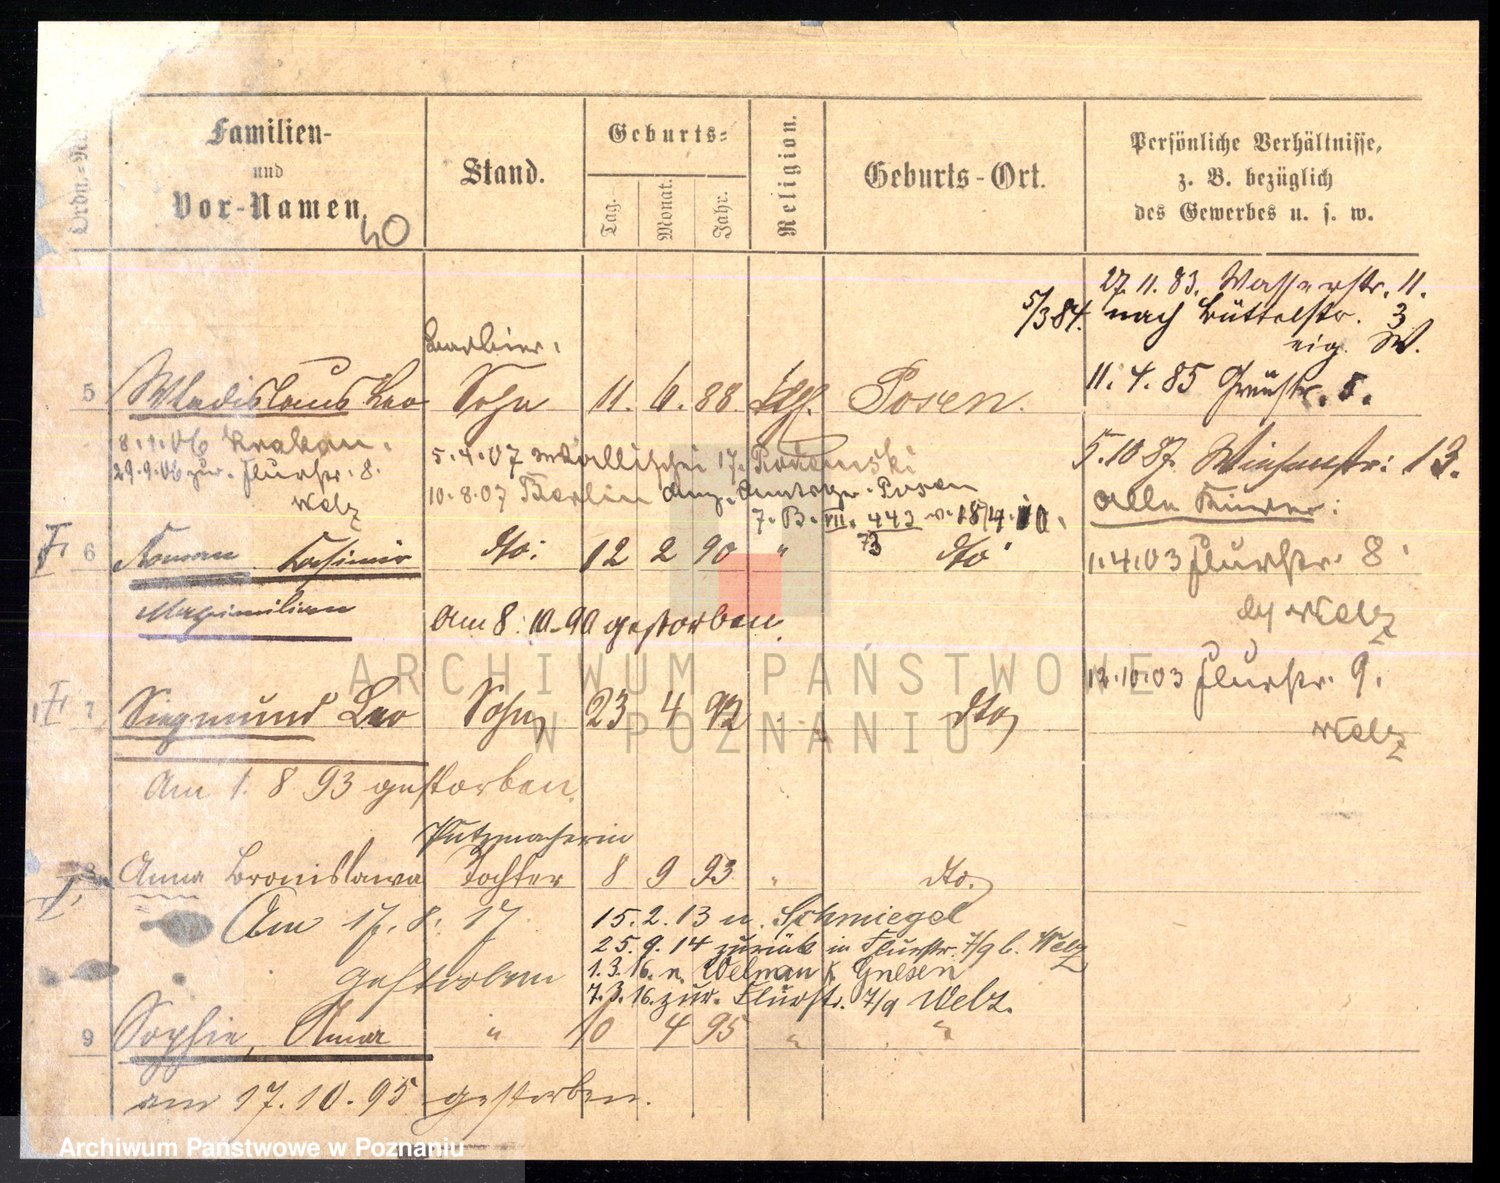 Ordn.-Nr.
Familien-
und
Vor-Namen
40
Stand.
Geburts-
Tag.
Monat.
Jahr.
Religion.
Geburts-Ort.
Persönliche Verhältnisse,
z. B. bezüglich
des Gewerbes u. s. w.
27.11.83. Wasserstr. 11.
5/3 84. nach Büttelstr. 3
eig. W.
11.4.85 Grünstr. 5.
5.10 87. Wiesenstr: 13.
alle Kinder:
1.4.03 Flurstr. 8
bei Welz
12.10.03 Flurstr. 9.
Welz
Barbier.
5 Wladislaus Leo Sohn 11. 6. 88. kath. Posen.
8.1.06 Krakau.
29.9.06 zur. Flurstr. 8.
Welz
5.4.07 17.
10.8.07 Berlin Posen
7. B. VII. 442 v. 18/4. 10.
73
6 Roman Kasimir dto. 12 2 90 " dto
Maximilian
Am 8. 10. 90 gestorben.
7 Siegmund Leo Sohn 23 4 92 dto
Am 1. 8 93 gestorben.
Putzmacherin
8 Anna Bronislawa Tochter 8 9 93 " dto.
Am 17. 8. 17
gestorben
15.2.13 n. Schmiegel
25.9.14 zurück in Flurstr. 7/9 b. Welz
1.3.16. n. Welnau k. Gnesen
7.3.16. zur. Flurstr. 7/9 Welz.
9 Sophie, Anna " 10 4 95 " "
am 17.10.95 gestorben.
ARCHIWUM PAŃSTWOWE
W POZNANIU
Archiwum Państwowe w Poznaniu